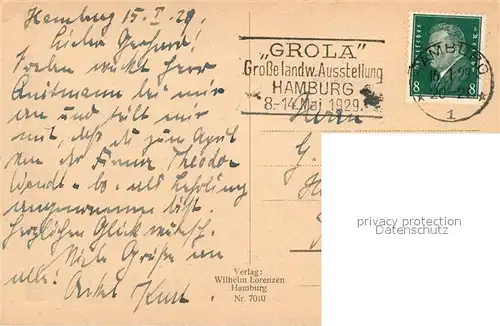 Hamburg 15. I. 29.
Lieber Gerhard!
Soeben ruft Herr
Amtmann bei mir
an und teilt mir
mit, daß du zum April
von der Firma Theodor
Wendt & Co. als Lehrling
angenommen bist.
Herzlichen Glückwunsch.
Viele Grüße an
alle! Onkel Kurt.
"GROLA"
Große landw. Ausstellung
HAMBURG
8.-14. Mai 1929.
8 8
HAMBURG
1
Herrn
G.
privacy protection
Datenschutz
Verlag:
Wilhelm Lorenzen
Hamburg
Nr. 7040